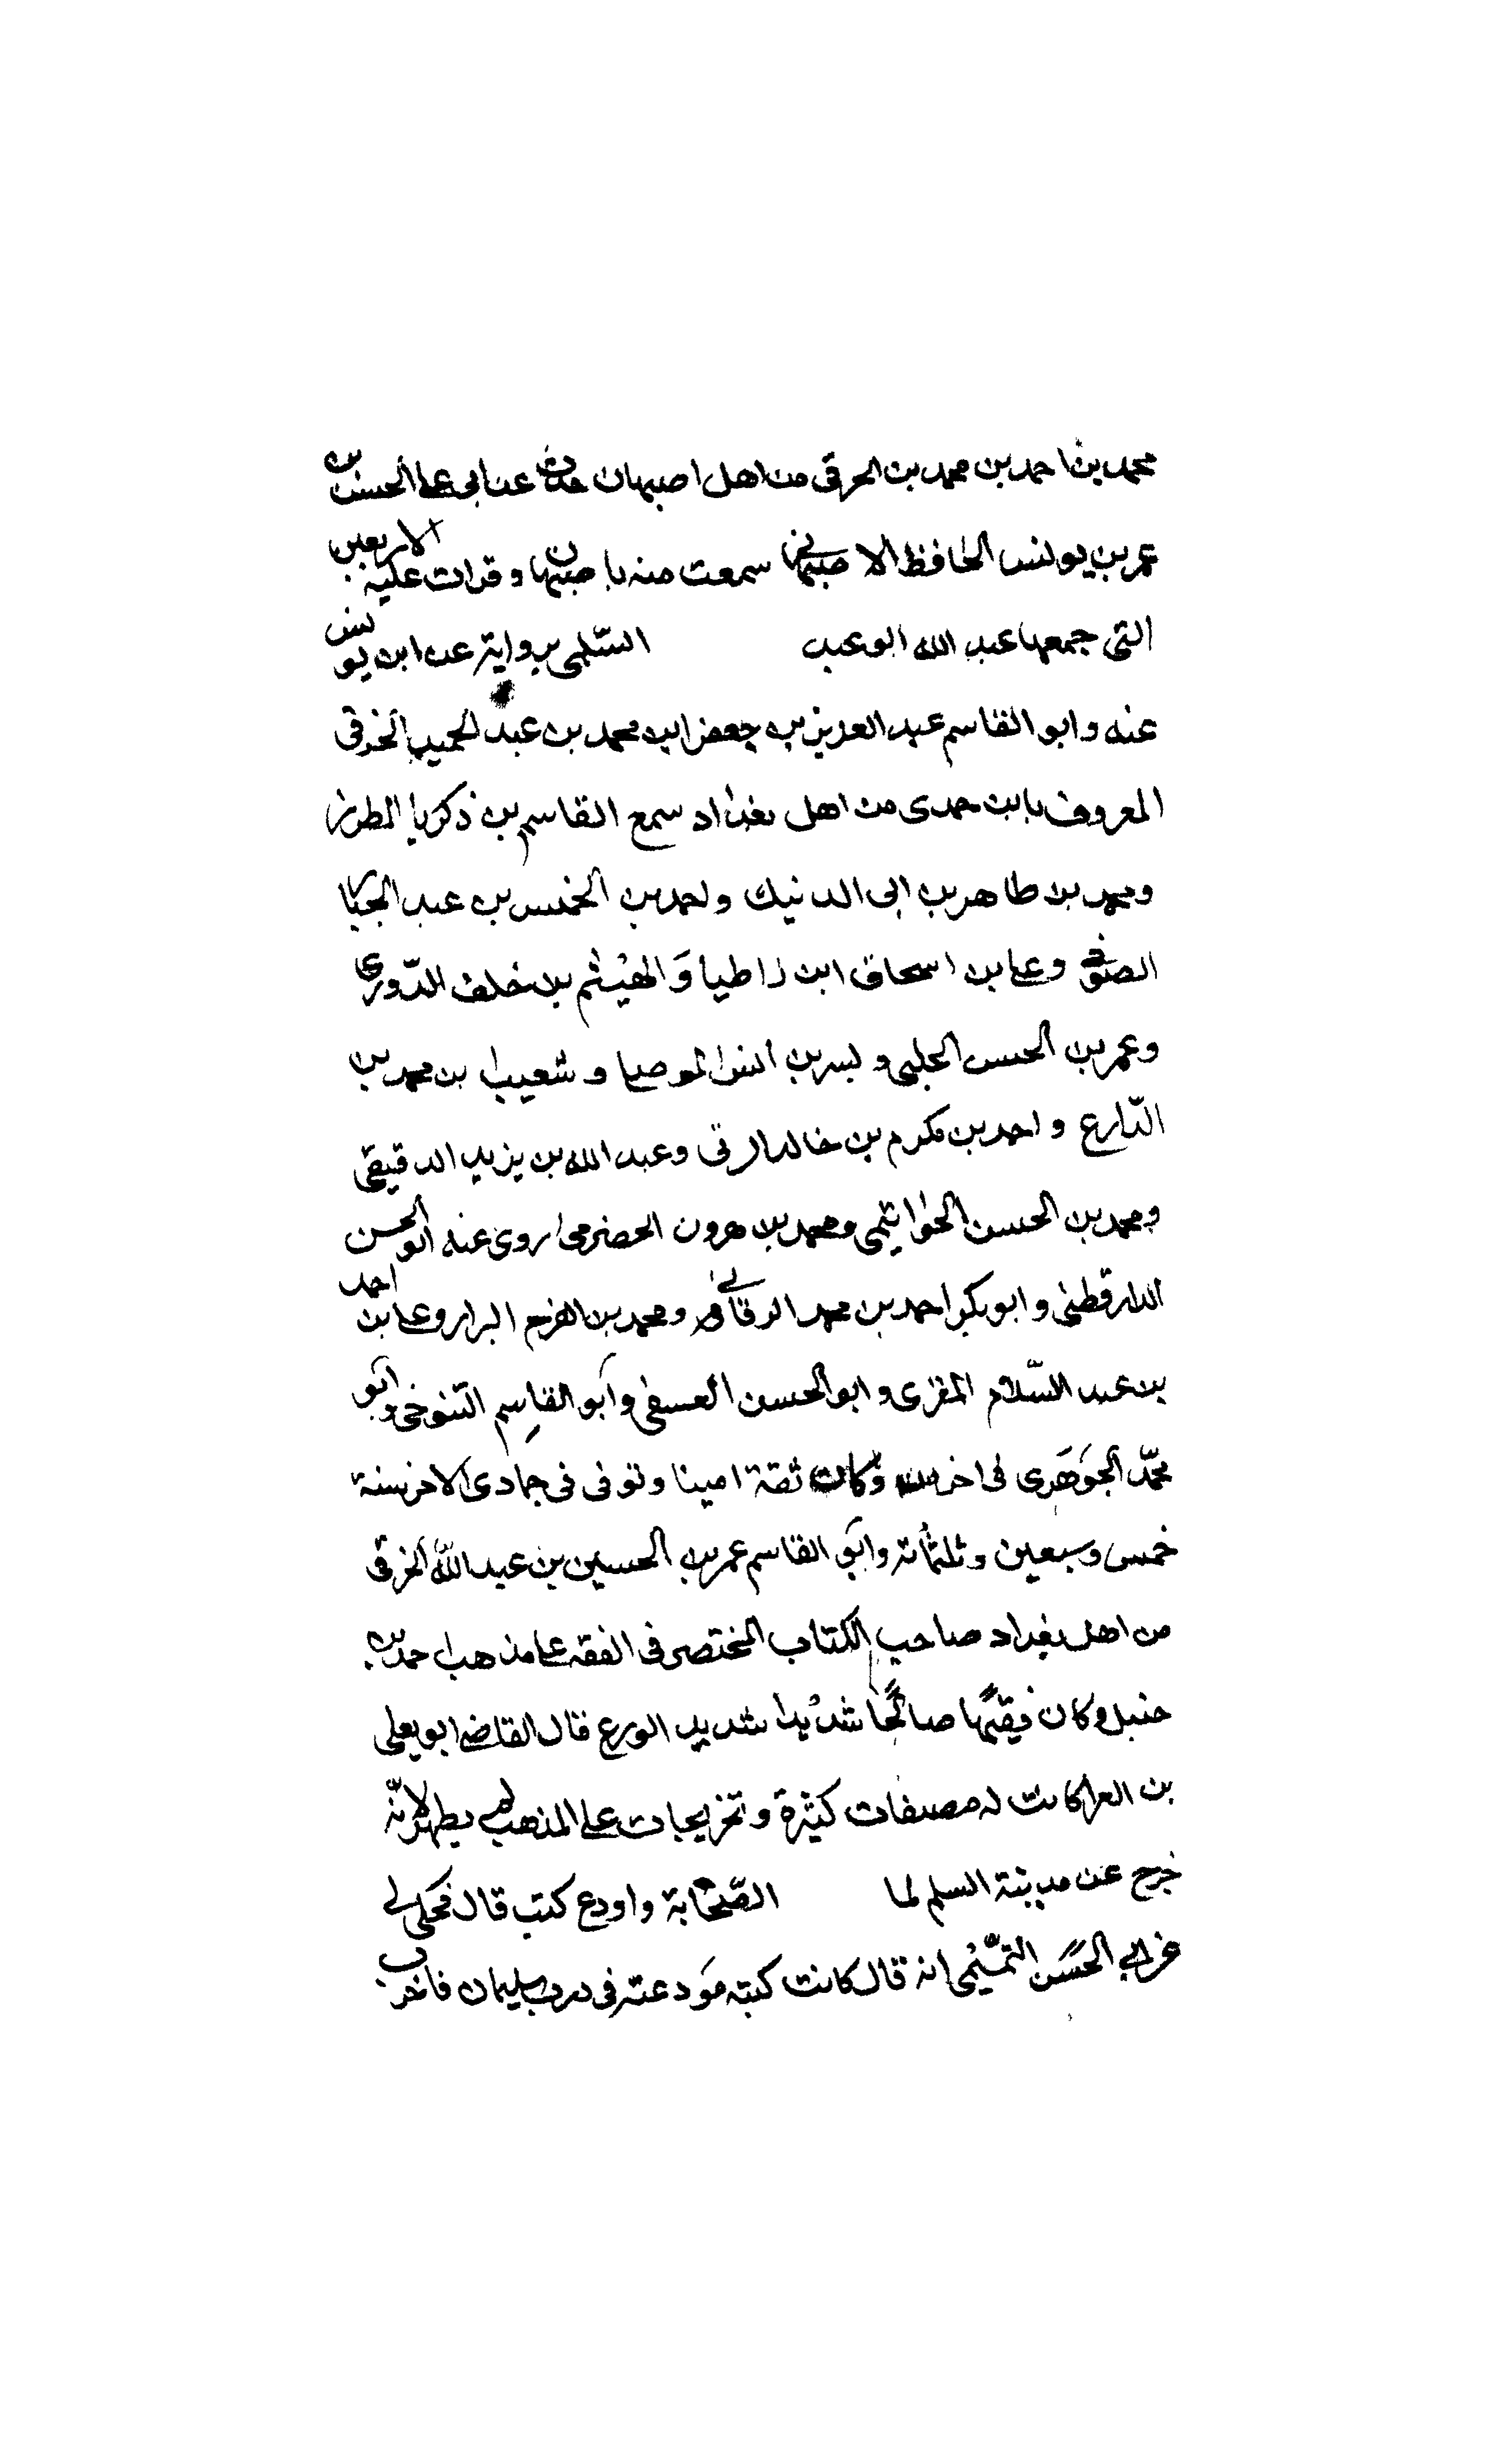 محمد بن احمد بن محمد بن الحرقى من اهل اصبهان حدث عن ابى على الحسن بن
عمر بن يونس الحافظ الاصبهانى سمعت منه باصبهان وقرات عليه الاربعين
التى جمعها عبد الله ابو عبد السلمى برواية عن ابن يونس
عنه وابو القاسم عبد العزيز بن جعفر ابن محمد بن عبد الحميد الخرقى
المعروف بابن حمدى من اهل بغداد سمع القاسم بن زكريا المطرز
ومحمد بن طاهر بن ابى الدنيك واحمد بن الحسن بن عبد الجبا
الصوفى وعلى بن اسحاق ابن زاطيا وَالهيْثم بن خلف الدّورى
وعمر بن الحسن الحلبى وبسر بن انس الموصلى وشعيب بن محمد بن
الدّارع واحمد بن مكرم بن خالد البرتى وعبد الله بن يزيد الدقيقى
ومحمد بن الحسن الحواتيمى ومحمد بن هرون الحضرمى روى عنه ابو الحسن
الدارقطنى وابو بكر احمد بن محمد البرقانى ومحمد بن الفرج البزار وعلى بن احمد
بن عبد السّلام المقرى وابو الحسن العتيقى وابو القاسم التنوخى وابو
محمّد الجوهَرى فى اخرين وَكان ثقة امينا وتوفى فى جمادى الاخر سنة
خمس وسبعين وثلثمائة وابو القاسم عمر بن الحسين بن عبد اللّه الخرقى
من اهل بغداد صاحب الكتاب المختصر فى الفقه على مذهب احمد بن
حنبل وكان فقيهًا صالحًا شديدا شديد الورع قال القاضى ابو يعلى
بن الفرا كانت له مصنفات كثيرة وتخريجات على المذهب لم يظهر لانّه
خرج عن مدينة السلم لما الصّحابة واودع كتب قال فحكى لى
عن ابى الحَسَن التمّيمى انه قال كانت كتبه مَودعته فى درب سليمان فاخرب